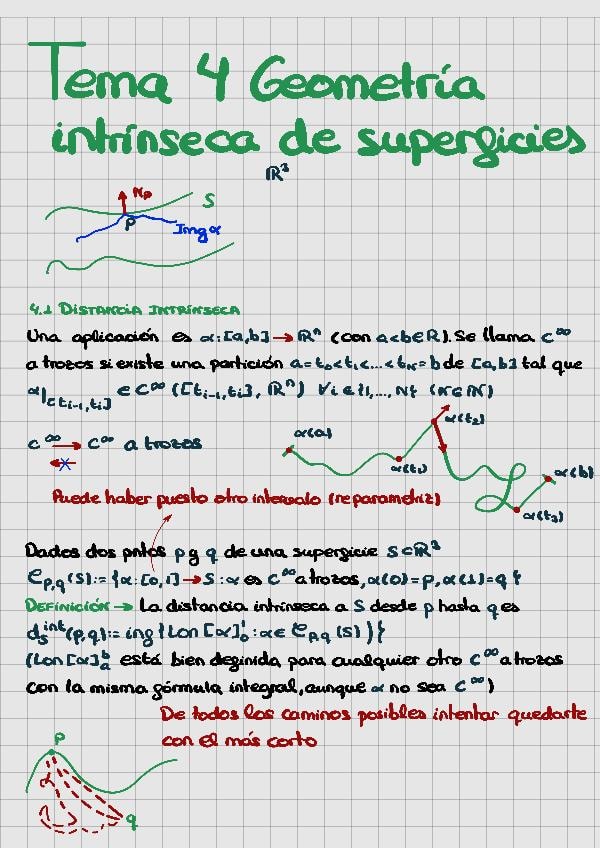 Tema 4 Geometría
intrínseca de superficies
ℝ³
Np
S
p
Img α
4.1 DISTANCIA INTRÍNSECA
Una aplicación es α:[a,b] → ℝⁿ (con a<b∈ℝ). Se llama C^∞
a trozos si existe una partición a=t₀<t₁<...<t_N=b de [a,b] tal que
α|[t_{i-1},t_i] ∈ C^∞ ([t_{i-1},t_i], ℝⁿ) ∀i∈{1,...,N} (N∈ℕ)
C^∞ → C^∞ a trozos
α(a)
α(t₁)
α(t₂)
α(t₃)
α(b)
Puede haber puesto otro intervalo (reparametriz)
Dados dos pntos p y q de una superficie S⊂ℝ³
C_{p,q}(S):={α:[0,1]→S:α es C^∞ a trozos, α(0)=p, α(1)=q}
DEFINICIÓN → La distancia intrínseca a S desde p hasta q es
d_S^{int}(p,q):= inf{Lon[α]₀¹:α∈C_{p,q}(S)}
(Lon[α]_a^b está bien definida para cualquier otro C^∞ a trozos
con la misma fórmula integral, aunque α no sea C^∞)
De todos los caminos posibles intentar quedarte
con el más corto
p
q